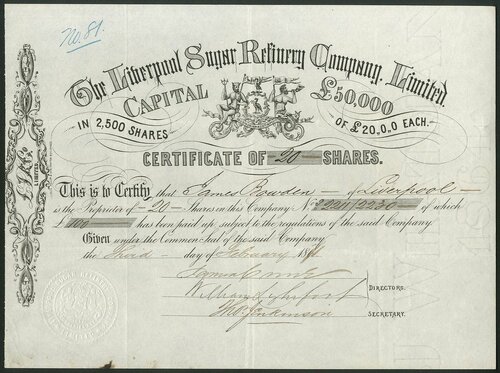 No. 81.
The Liverpool Sugar Refinery Company, Limited.
CAPITAL £50,000
IN 2,500 SHARES OF £20.0.0 EACH.
CERTIFICATE OF 20 SHARES.
This is to Certify that James Bowden of Liverpool
is the Proprietor of 20 Shares in this Company No
of which
£100 has been paid up subject to the regulations of the said Company
Given under the Common Seal of the said Company
the Third day of February
DIRECTORS.
Jenkinson
SECRETARY.
LIMITED